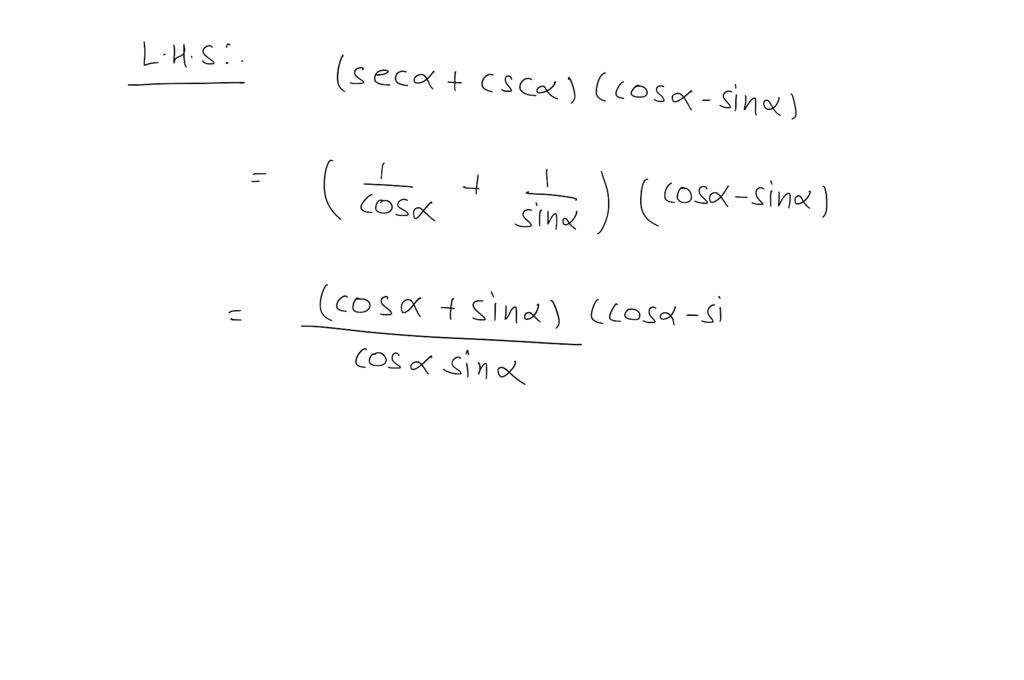 L.H.S:.
(secα + cscα) (cosα - sinα)
= (1/cosα + 1/sinα) (cosα - sinα)
= (cosα + sinα)/(cosα sinα) (cosα - si